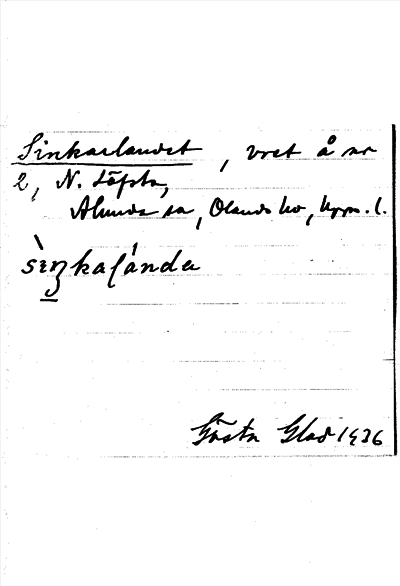 Sinkarlandet, vret å nr
2, N. Löfsta,
Alunda sn, Olands hd, Upps. l.
sìŋkaɭándɐ
Gösta Glad 1936